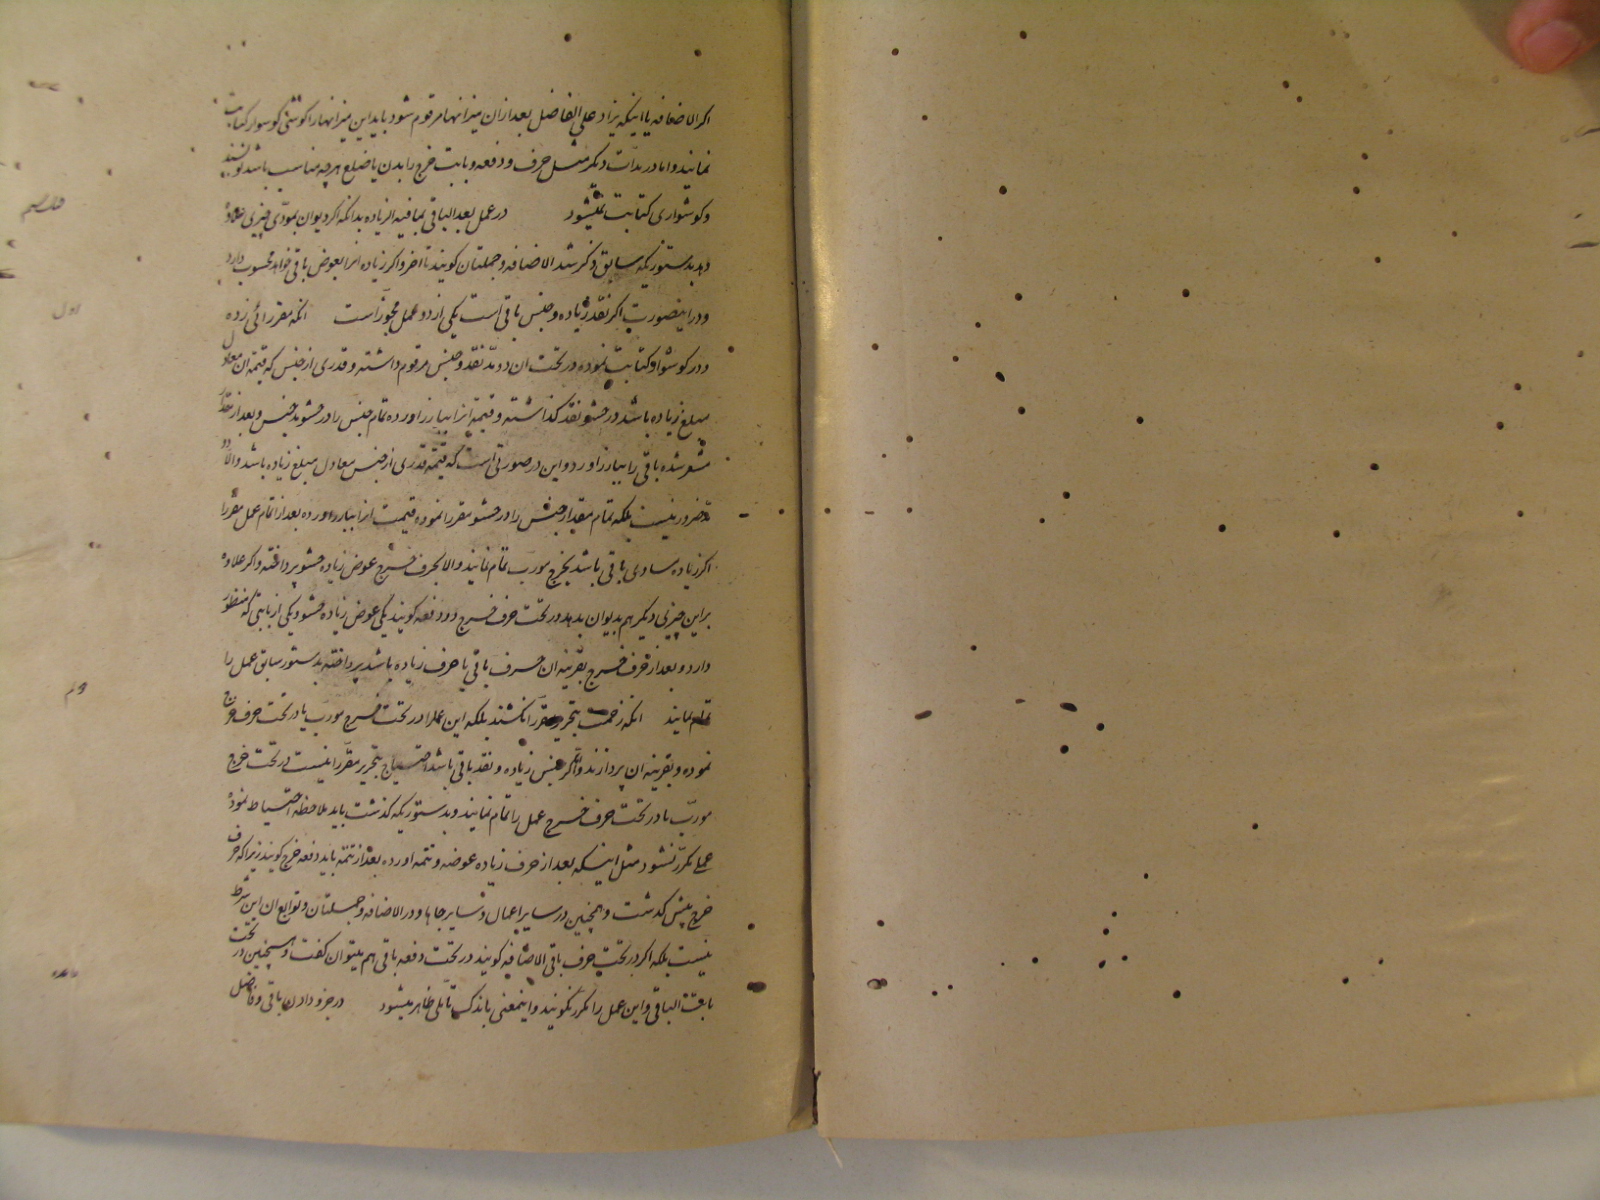 اکر الاضافه یا اینکه یزاد علی الفاضل بعد ازان میزانها مرقوم شود باید این میزانها را کوشی کوسوار کتابت
نمایند و اما در مدات دیکر مثل حرف و دفعه و بابت خرج را بدن یا ضلع هرچه مناسب باشد نویسند
و کوشواری کتابت نمیشود در عمل بعد الباقی بما فیه الزیاده بدانکه اکر دیوان بمودی چیزی علاوه
دهد بدستوریکه سابق ذکر شد الاضافه و جملتان کویند تا اخر و اکر زیاده انرا بعوض باقی خواهد محسوب دارد
و در اینصورت اکر نقد زیاده و جنس باقی است یکی از دو عمل مجوز است انکه مقررائی زده
و در کوشوار او کتابت نموده در تحت ان دو مد نقد و جنس مرقوم داشته و قدری از جنس که قیمة ان معادل
مبلغ زیاده باشد در حشو نقد کذاشته و قیمة انرا ببارز اورده تمام جنس را در حشو مد جنس و بعد از
مشعر شده باقی را ببارز اورد و این در صورتی است که قیمة قدری از جنس معادل مبلغ زیاده باشد والا
ضرور نیست بلکه تمام مقدار جنس را در حشو مقررا نموده قیمت انرا ببارز اورده بعد از اتمام عمل مقررا
اکر زیاده مساوی باقی باشد بخرج مورب تمام نمایند والا بحرف خرج عوض زیاده حشو پرداخته و اکر علاوه
بر این چیزی دیکر هم بدیوان بدهد در تحت حرف خرج دو دفعه کویند یکی عوض زیاده حشو و یکی از بابتی که منظور
دارد و بعد از حرف خرج بقرینه ان حرف باقی یا حرف زیاده باشد پرداخته بدستور سابق عمل را
تمام نمایند انکه زحمت تحریر مقررا نکشند بلکه این عمل را در تحت خرج مورب یا در تحت حرف خرج
نموده و بقرینه ان پردازند و اکر جنس زیاده و نقد باقی باشد احتیاج بتحریر مقررا نیست در تحت خرج
مورب یا در تحت حرف خرج عمل را تمام نمایند و بدستوریکه کذشت باید ملاحظه احتیاط نموده
عملی مکرر نشود مثل اینکه بعد از حرف زیاده عوضه و تتمه اورده بعد از تتمه باید دفعه خرج کویند زیرا که حرف
خرج پیش کذشت و همچنین در سایر اعمال و سایر جاها و در الاضافه و جملتان و توابع ان این شرط
نیست بلکه اکر در تحت حرف باقی الاضافه کویند در تحت دفعه باقی هم میتوان کفت و همچنین در تحت
بابت الباقی و این عمل را مکرر نکویند و اینمعنی باندک تأملی ظاهر میشود در جزو دادن باقی و فاضل
اول
دوم